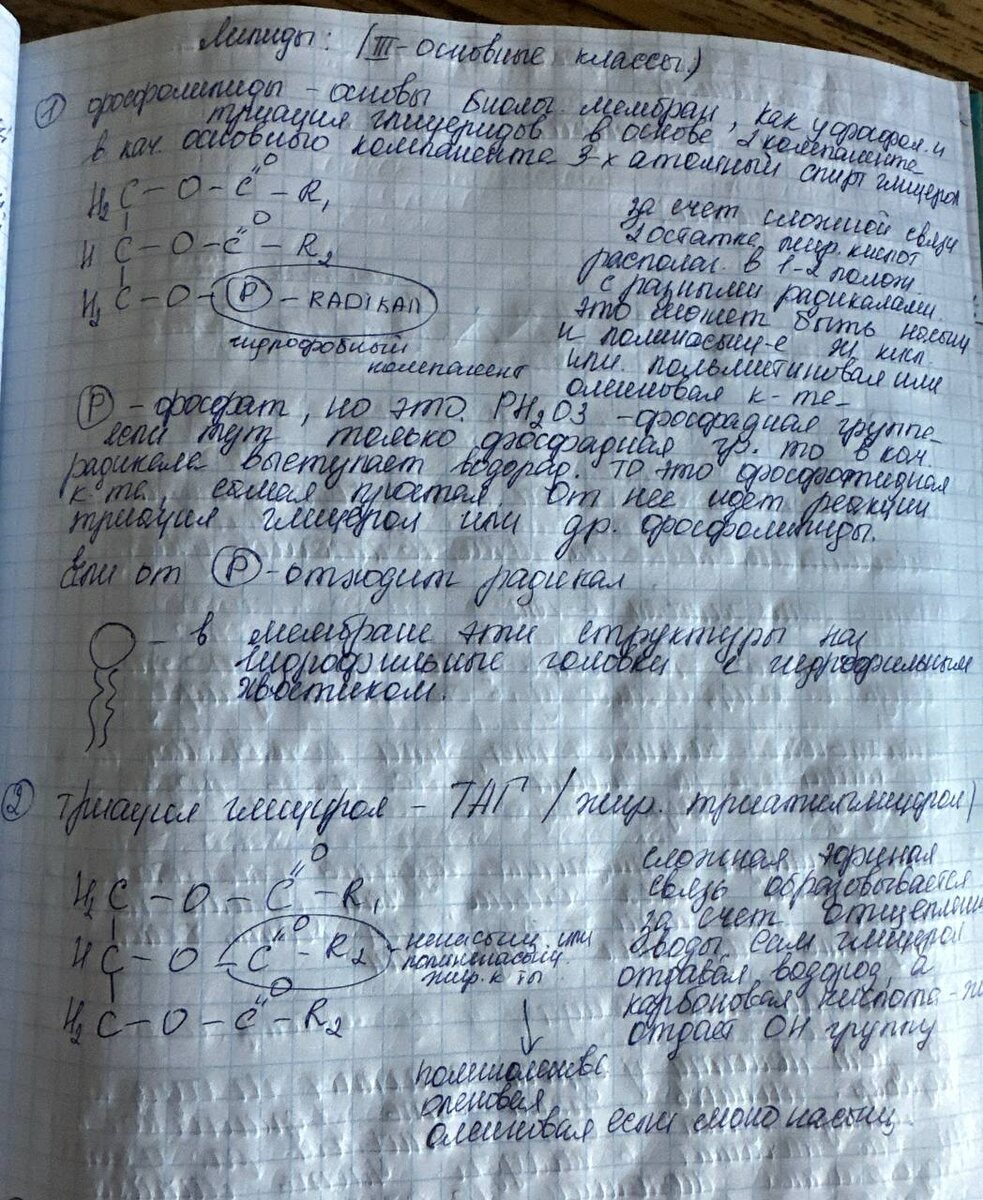 Липиды: (III - основные классы)
① фосфолипиды - основы биолог. мембран, как у фосфол. и
триацил глицеридов в основе 2 компонента
в кач. основного компонента 3-х атомный спирт глицерол
H₂C - O - C - R₁
O
HC - O - C - R₂
O
H₂C - O - (P) - RADIKAЛ
гидрофобный
компанент
за счет сложной связи
2 остатка жир. кислот
располаг. в 1-2 полож
с разными радикалами.
это может быть насыщ
и полинасыщ-е ж.
или пальмитиновая или
олеиновая к-та-
(P) - фосфат, но это PH₂O3 - фосфадная группа
если тут только фосфадная гр. то в кач.
радикала выступает водород. то это фосфотидная
к-та, самая простая. От нее идет реакции
триацил глицерол или др. фосфолипиды.
Если от (P) - отходит радикал
- в мембране эти структуры наз
гидрофильные головки с гидрофильным
хвостиком.
② триацил глицерол - ТАГ / жир. триатилглицерол)
H₂C - O - C - R₁
O
HC - O - C - R₂
O
H₂C - O - C - R₂
O
- ненасыщ. или
полиненасыщ
жир. к-ты
сложная эфирная
связь образовывается
за счет отщеплени
воды сам глицерол
отдавал водород, а
карбоновая кислота - ж
отдает OH группу
олеиновая если моно насыщ